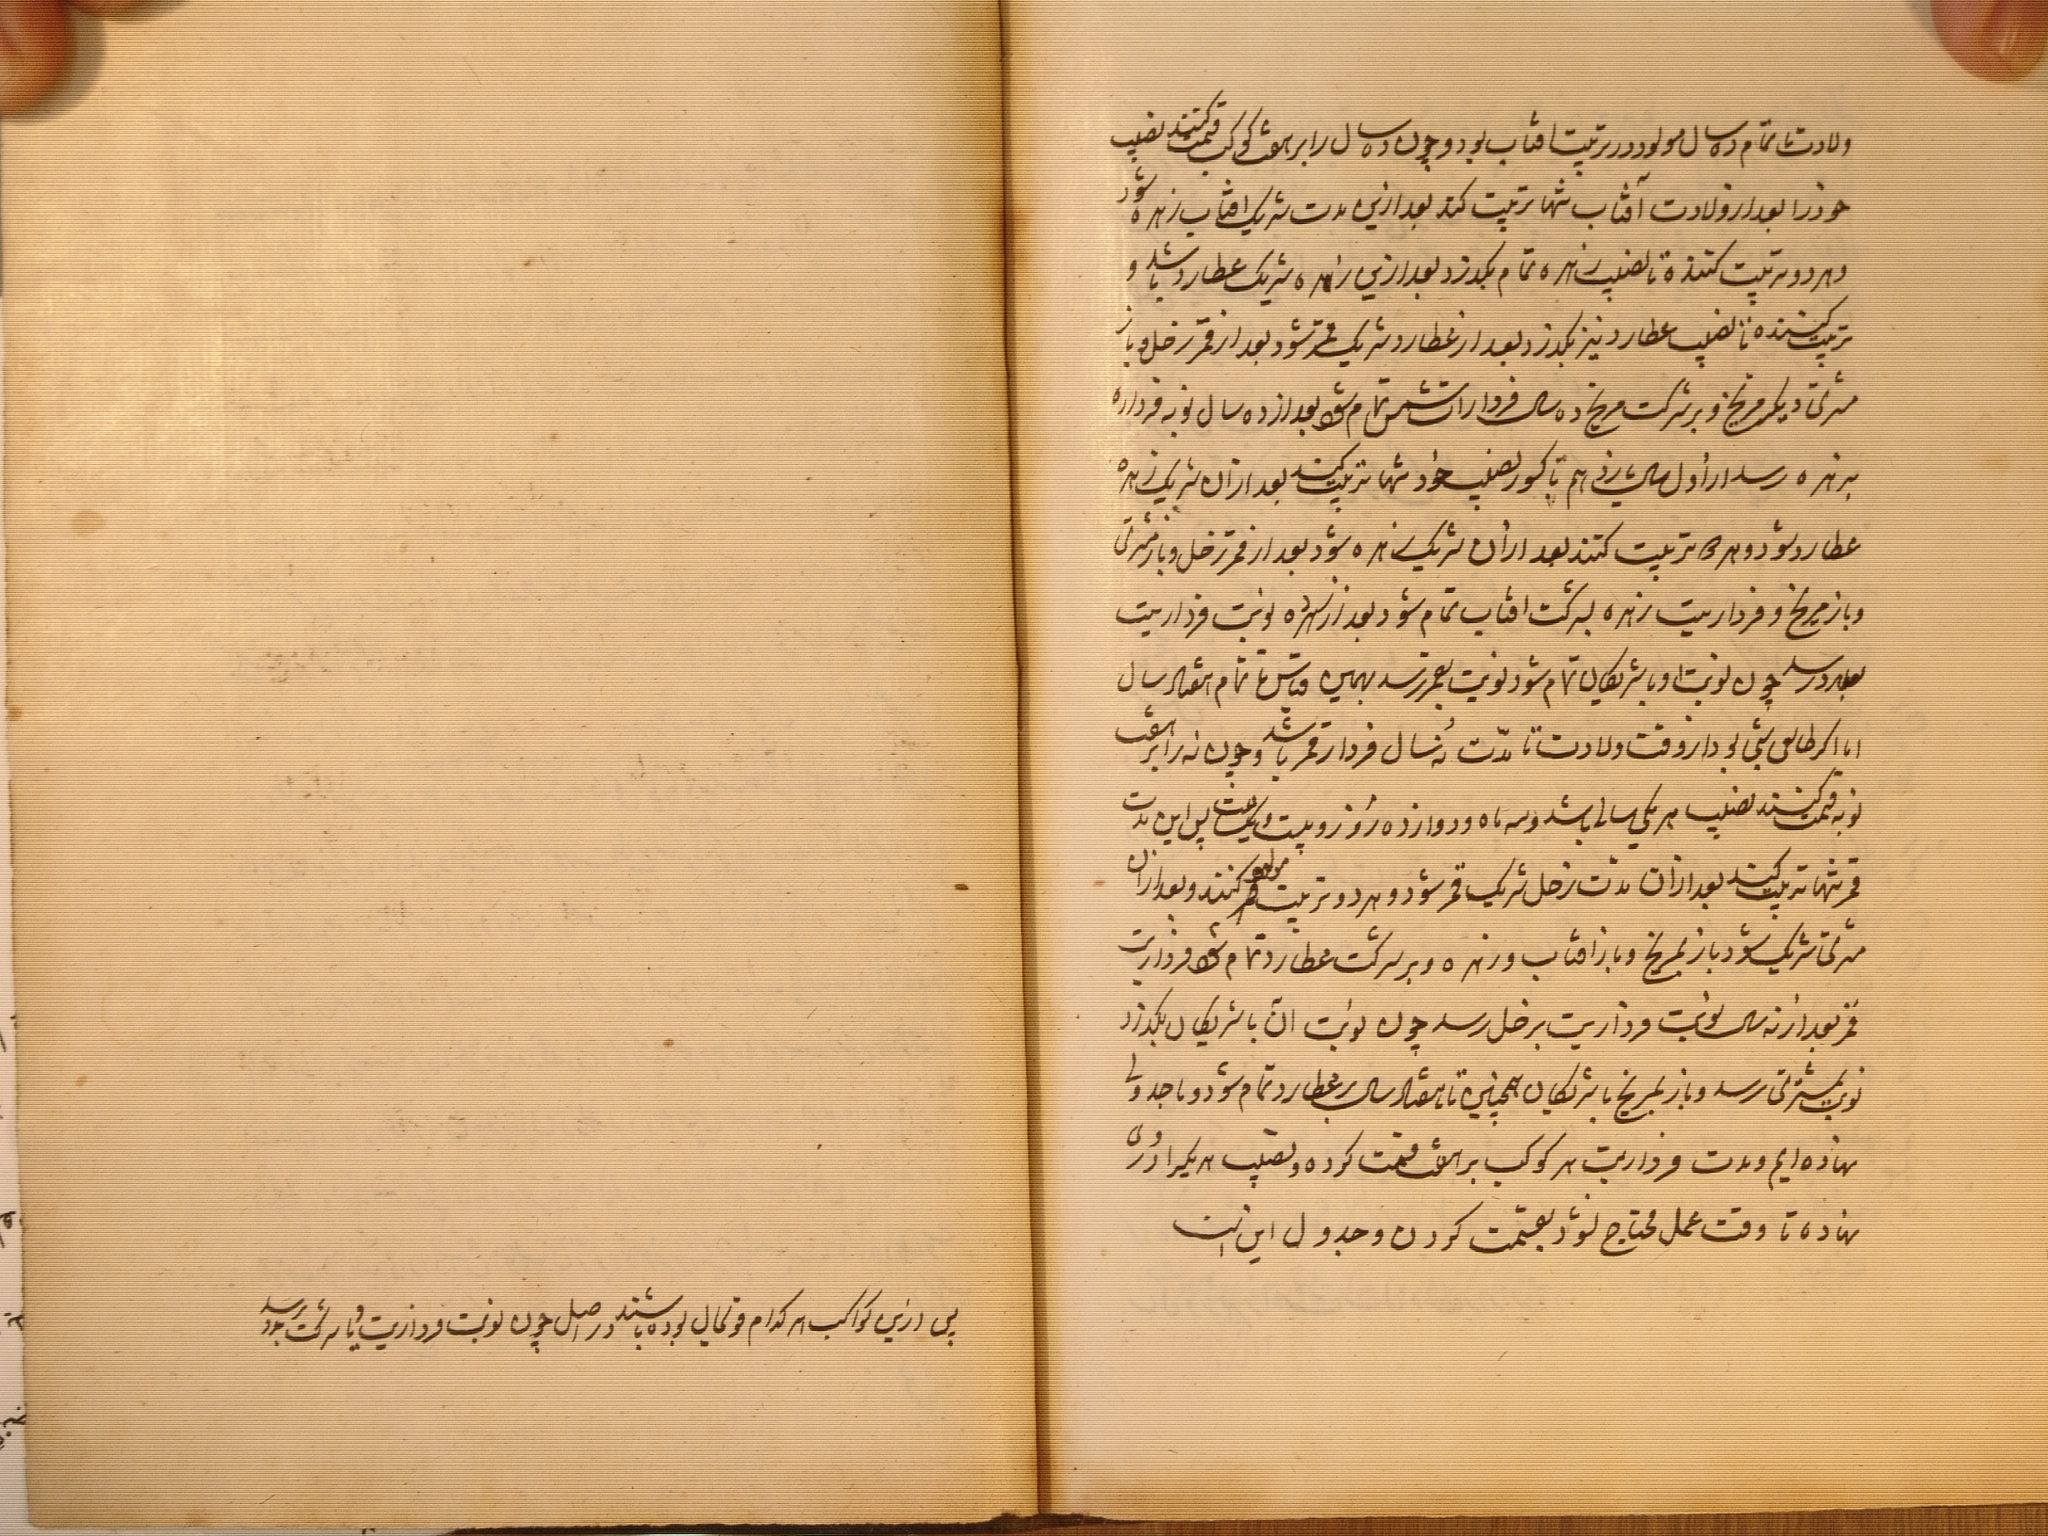 ولادت تا تمام ده سال مولود در تربیت افتاب بود و چون ده سال را بر هفت کوکب قسمت کنند نصیب
خود را بعد از ولادت آفتاب تنها تربیت کند بعد ازین مدت شریک افتاب زهره شود
و هر دو تربیت کننده تا نصیب زهره تمام بکذرد بعد ازین زهره شریک عطارد باشد و
تربیت کننده تا نصیب عطارد نیز بکذرد بعد از عطارد شریک قمر شود بعد از قمر زحل و باز
مشتری دیکر مریخ و بر شرکت مریخ ده سال فردارات شمس تمام شود بعد از ده سال نوبه فرداره
بزهره رسد از اول سال یازدهم تا کسور نصیب خود تنها تربیت کند بعد از ان شریک زهره
عطارد شود و هر دو تربیت کنند بعد از ان شریک زهره شود بعد از قمر زحل و باز مشتری
و باز مریخ و فرداریت زهره بشرکت افتاب تمام شود بعد از زهره نوبت فرداریت
بعطارد رسد چون نوبت او با شریکان تمام شود نوبت بقمر رسد بهمین قیاس تا تمام هفتاد سال
اما اکر طالعی شبی بود از وقت ولادت تا مدّت نُه سال فردار قمر باشد و چون نه را بر هفت
نوبه قسمت کنند نصیب هر یکی سالی باشد و سه ماه و دوازده روز و بیست و یک ساعت پس این مدت
قمر تنها تربیت کند بعد از ان مدت زحل شریک قمر شود و هر دو تربیت مولود کنند و بعد از ان
مشتری شریک شود باز مریخ و باز افتاب و زهره و بر شرکت عطارد تمام شود فرداریت
قمر بعد از نه سال نوبت فرداریت بزحل رسد چون نوبت ان با شریکان بکذرد
نوبت بمشتری رسد و باز بمریخ با شریکان همچنین تا هفتاد سال بر عطارد تمام شود و ما جدولی
نهاده ایم و مدت فرداریت هر کوکب بر هفت قسمت کرده و نصیب هر یک را در وی
نهاده تا وقت عمل محتاج نشود بقسمت کردن و جدول این است
پس ازین کواکب هر کدام قوی حال بوده باشند در اصل چون نوبت فرداریت و یا شرکت رسد